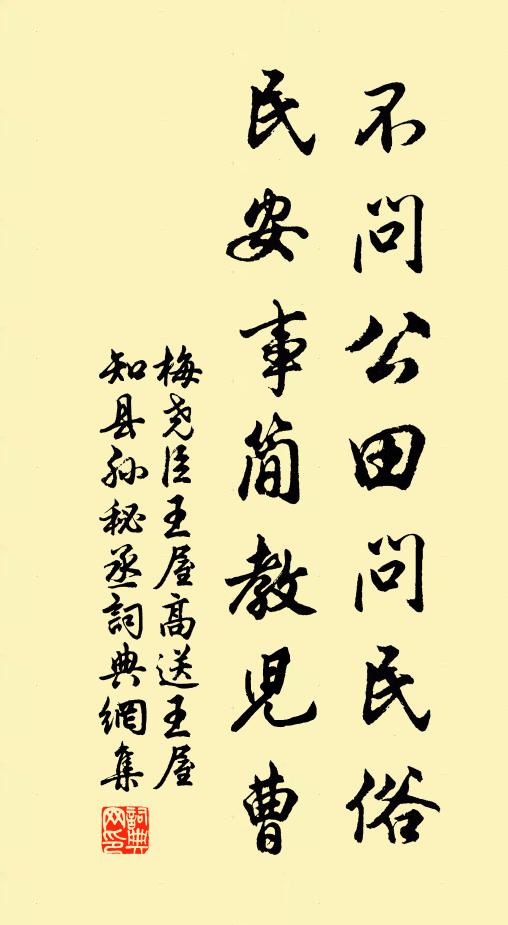 不问公田问民俗
民安事简教児曹
梅尧臣王屋高送王屋
知县孙秘丞詞典網集
詞典
网印